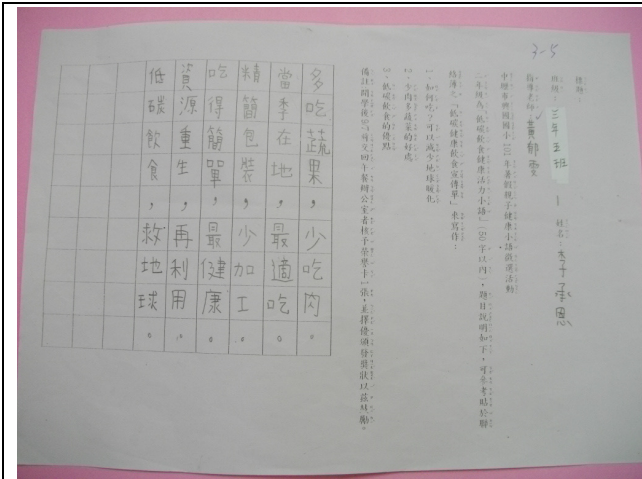 3-5
班級：三年五班 姓名：李承恩
指導老師：黃郁雯
中壢市興國國小101年暑假親子健康小語徵選活動
三年級為「低碳飲食健康活力小語」(50字以內)，題目說明如下，可參考貼於聯
絡簿之「低碳健康飲食宣傳單」來寫作：
一、如何吃？可以減少地球暖化
二、少肉多蔬菜的好處
三、低碳飲食的優點
備註：開學後9/7前交回午餐辦公室者核予榮譽卡一張，並擇優頒發獎狀以茲鼓勵。
多吃蔬果，少吃肉。
當季在地，最適吃。
精簡包裝，少加工。
吃得簡單，最健康。
資源重生，再利用。
低碳飲食，救地球。